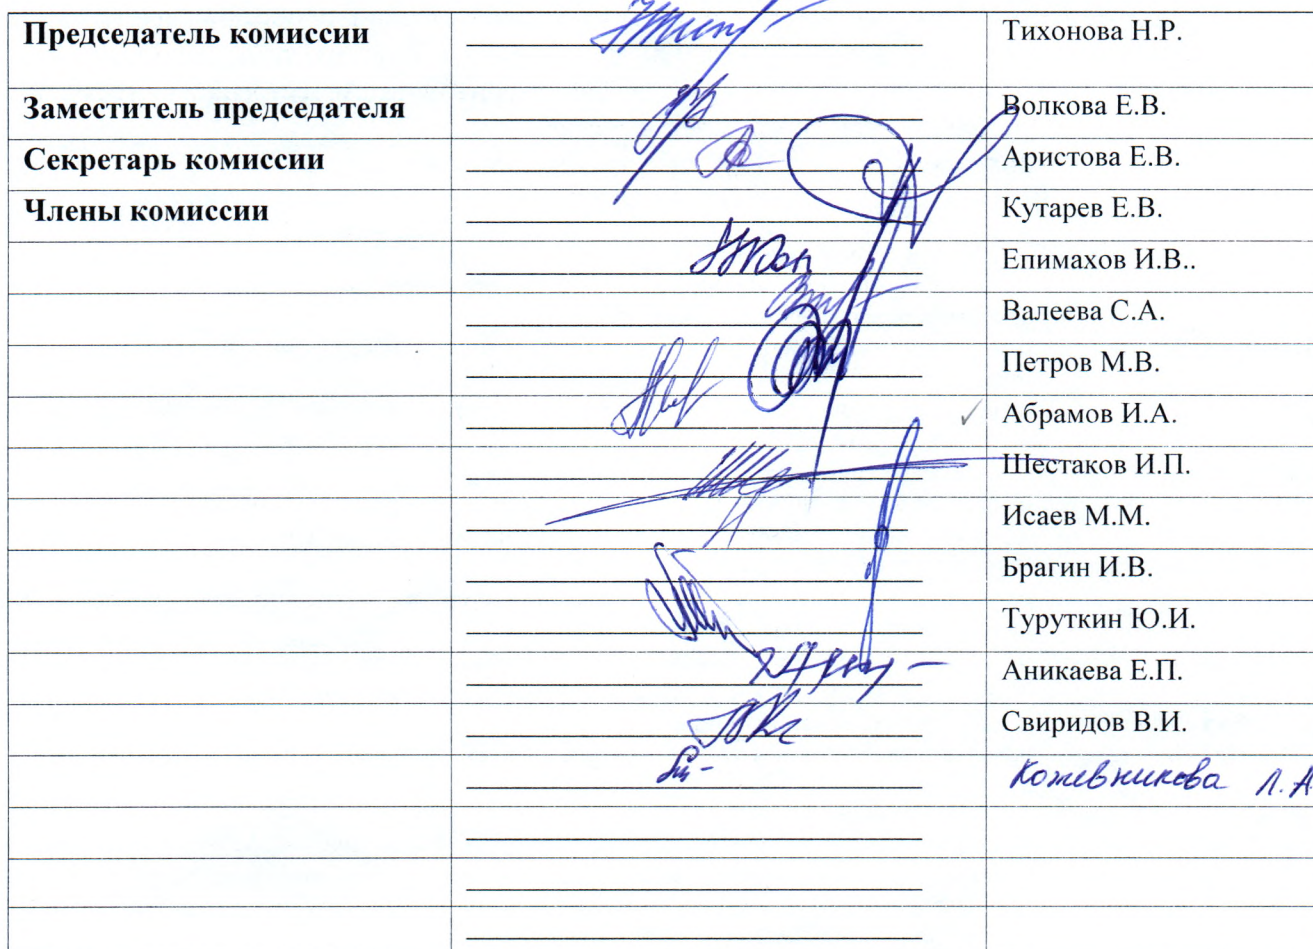 Председатель комиссии Тихонова Н.Р.
Заместитель председателя Волкова Е.В.
Секретарь комиссии Аристова Е.В.
Члены комиссии Кутарев Е.В.
Епимахов И.В..
Валеева С.А.
Петров М.В.
Абрамов И.А.
Шестаков И.П.
Исаев М.М.
Брагин И.В.
Туруткин Ю.И.
Аникаева Е.П.
Свиридов В.И.
Кожевникова Л.А